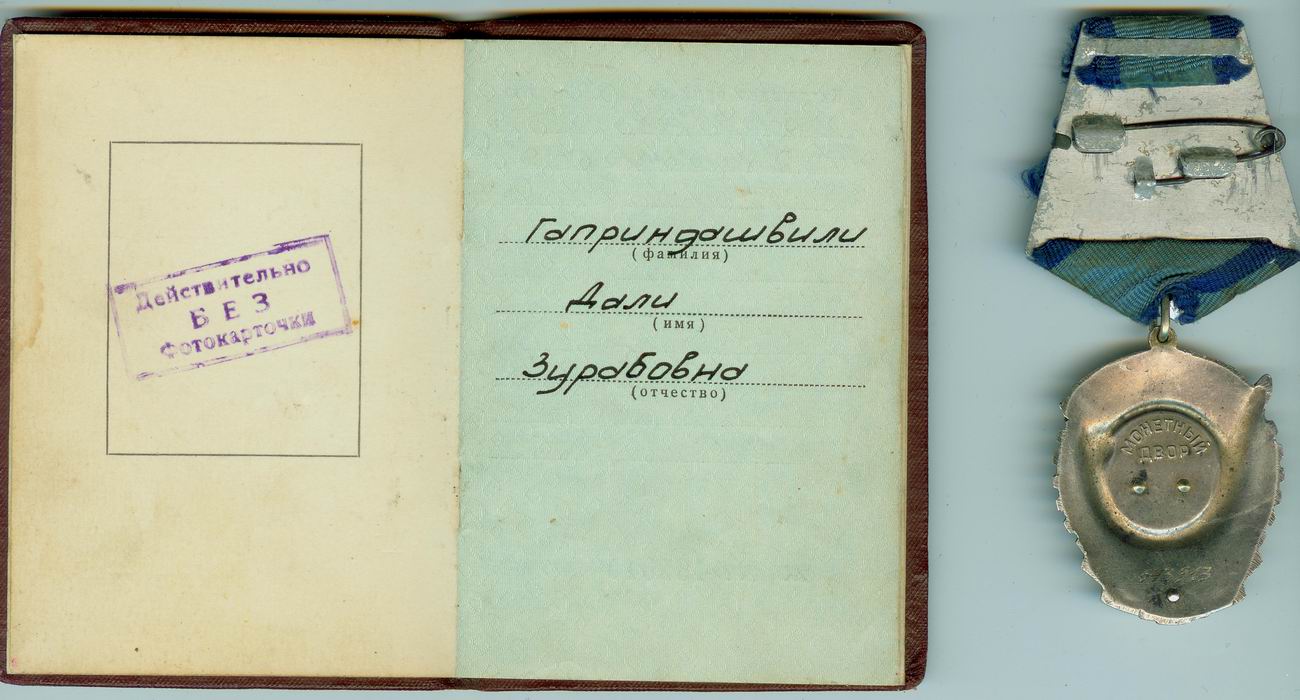 Действительно
БЕЗ
Фотокарточки
Гаприндашвили
(фамилия)
Дали
(имя)
Зурабовна
(отчество)
МОНЕТНЫЙ
ДВОР